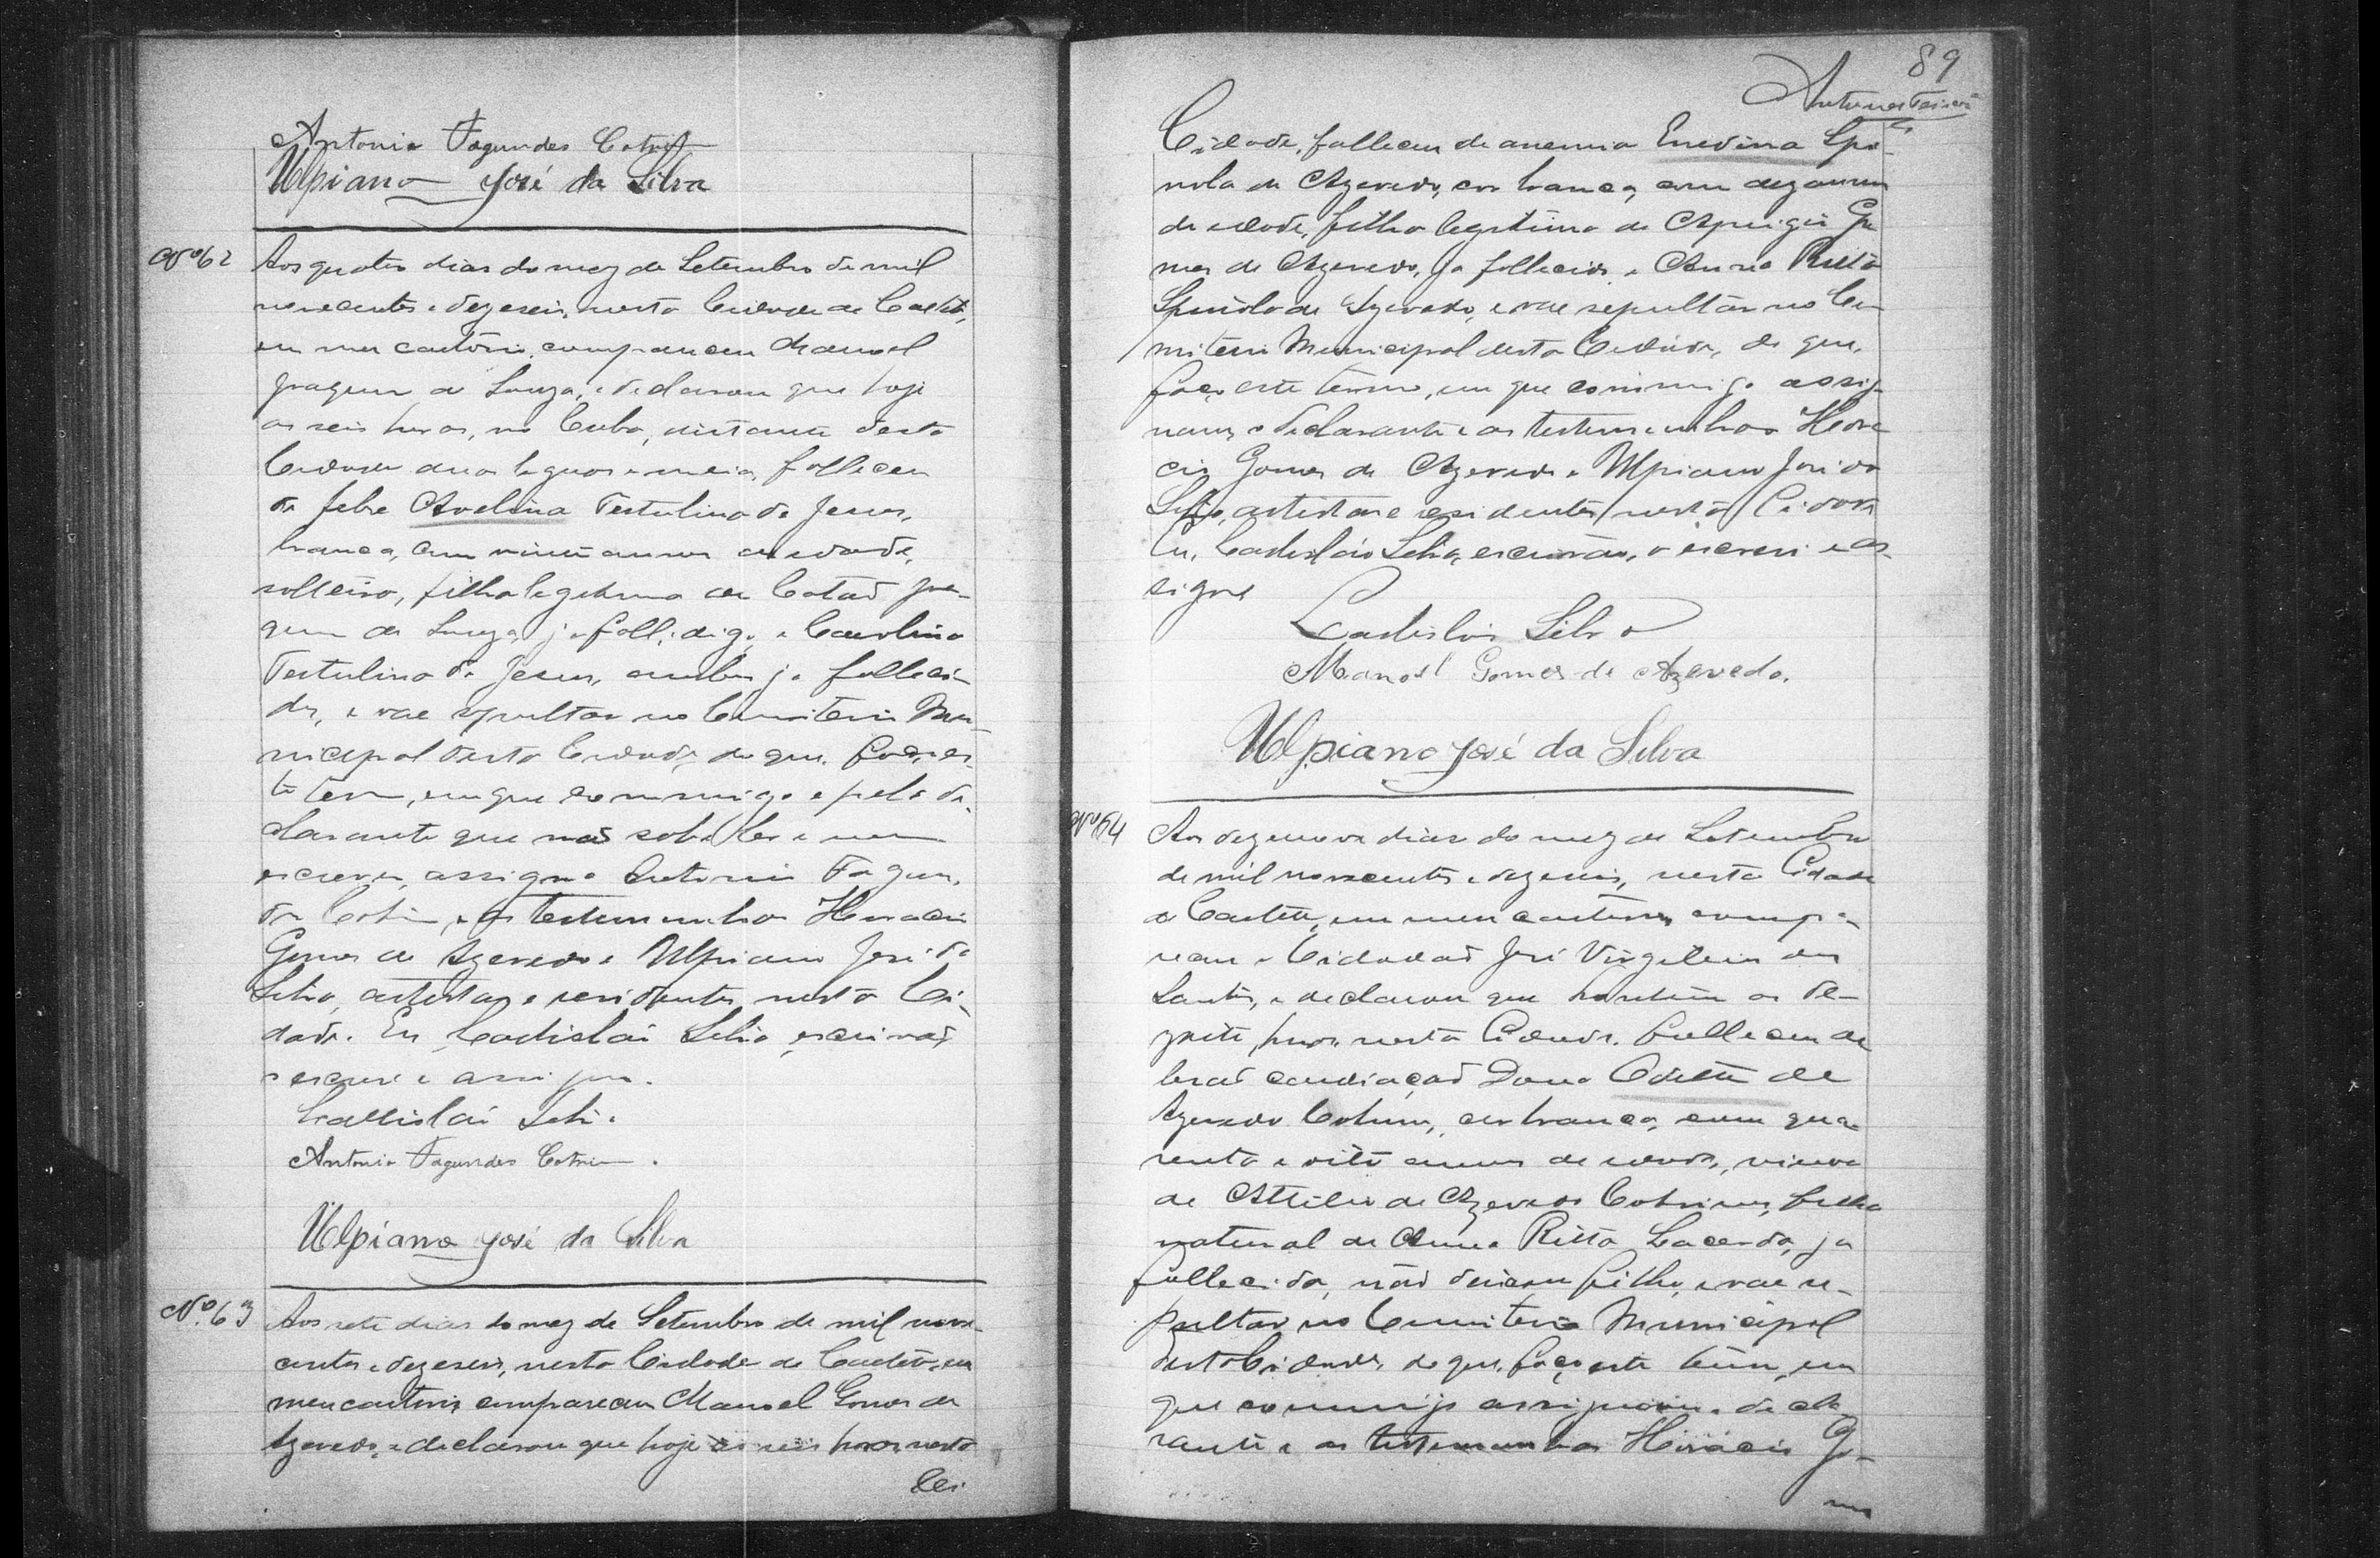 Antonio Fagundes Cotrim
Ulpiano José da Silva
Nº 62
Aos quatro dias do mez de Setembro de mil
novecentos e dezeseis, nesta Cidade de Caetité,
em meu cartorio, compareceu Manoel
Joaquim de Souza, e declarou que hoje
as seis horas, no Cubo, distante desta
Cidade duas leguas e meia, falleceu
de febre Avelina Testulina de Jesus,
branca, com vinte annos de idade,
solteira, filha legitima de Joa-
quim de Souza, ja e Carolina
Testulina de Jesus, ambos ja falleci-
dos, e vae sepultar no Cemiterio Mu-
nicipal desta Cidade, do que, faço es-
te termo, em que commigo e pelo de-
clarante que não sabe ler e nem
escrever, assigna Antonio Fagun-
des Cotrim, e as testemunhas Horacio
Gomes de Azevedo e Ulpiano José da
Silva, artistas e residentes nesta Ci-
dade. Eu Ladislau Silva, escrivão,
o escrevi e assigno.
Ladislau Silva
Antonio Fagundes Cotrim.
Ulpiano José da Silva
Nº 63
Aos sete dias do mez de Setembro de mil nove-
centos e dezeseis, nesta Cidade de Caetité, em
meu cartorio compareceu Manoel Gomes de
Azevedo, e declarou que hoje as seis horas, nesta
Ci-
89
Antunes
Cidade, falleceu de anemia Enedina Spi-
nola de Azevedo, cor branca, com annos
de idade, filha legitima de Aprigio Go-
mes de Azevedo, ja fallecido, e Anna Ritta
Spinola de Azevedo, e vae sepultar no Ce-
miterio Municipal desta Cidade, do que,
faço este termo, em que commigo assig-
nam o declarante e as testemunhas Hora-
cio Gomes de Azevedo e Ulpiano José da
Silva, artistas e residentes nesta Cidade
Eu, Ladislau Silva, escrivão, o escrevi e as-
signo
Ladislau Silva
Manoel Gomes de Azevedo.
Ulpiano José da Silva
Nº 64
Aos dezenove dias do mez de Setembro
de mil novecentos e dezeseis, nesta Cidade
de Caetité, em meu cartorio, compa-
receu o Cidadão José Virgilino dos
Santos, e declarou que hontem as de-
zoito horas nesta Cidade, falleceu de
lesão cardiaca Dona Odetta de
Azevedo Cotrim, cor branca, com qua-
renta e oito annos de idade, viuva
de Attilio de Azevedo Cotrim, filha
natural de Anna Ritta Lacerda, ja
fallecida, não deixou filho, e vae se-
pultar no Cemiterio Municipal
desta Cidade, do que, faço este termo, em
que commigo assignam o decla-
rante e as testemunhas Horacio Go-
mes